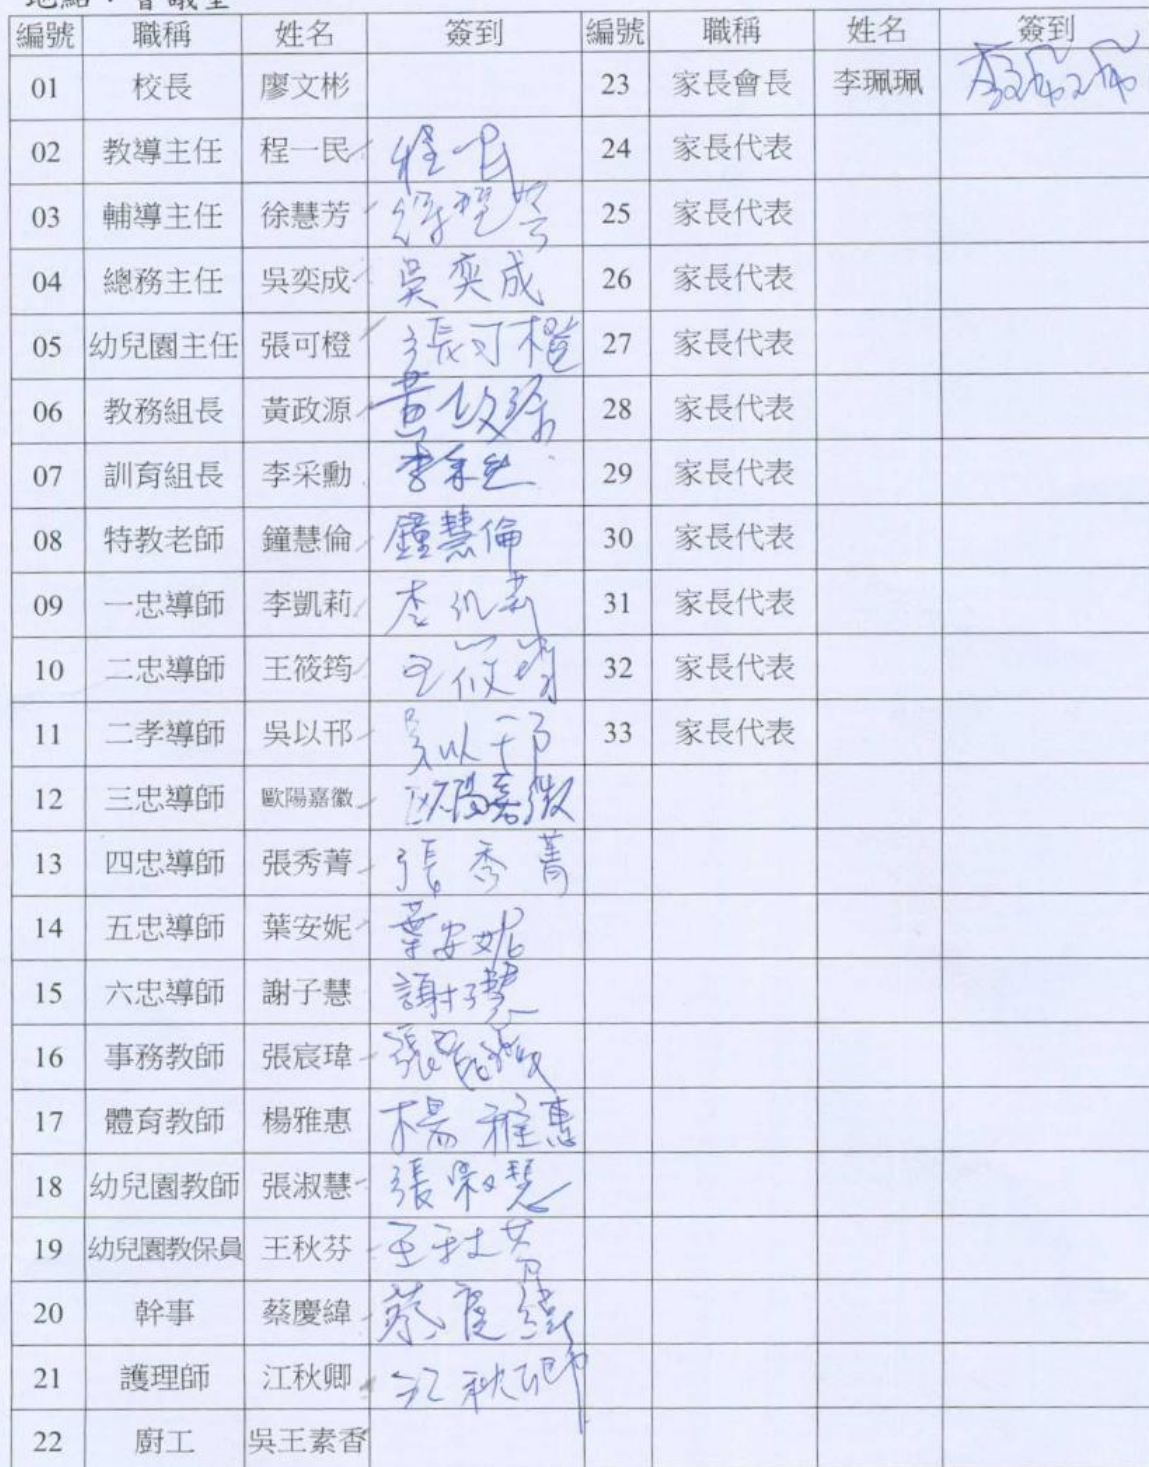 地點：會議室
編號 職稱 姓名 簽到 編號 職稱 姓名 簽到
01 校長 廖文彬 23 家長會長 李珮珮 李珮珮
02 教導主任 程一民 程一民 24 家長代表
03 輔導主任 徐慧芳 徐慧芳 25 家長代表
04 總務主任 吳奕成 吳奕成 26 家長代表
05 幼兒園主任 張可橙 張可橙 27 家長代表
06 教務組長 黃政源 黃政源 28 家長代表
07 訓育組長 李采勳 李采 29 家長代表
08 特教老師 鐘慧倫 鐘慧倫 30 家長代表
09 一忠導師 李凱莉 李凱莉 31 家長代表
10 二忠導師 王筱筠 王筱筠 32 家長代表
11 二孝導師 吳以邗 吳以邗 33 家長代表
12 三忠導師 歐陽嘉徽 欧陽嘉徽
13 四忠導師 張秀菁 張秀菁
14 五忠導師 葉安妮 葉安妮
15 六忠導師 謝子慧 謝子慧
16 事務教師 張宸瑋 張
17 體育教師 楊雅惠 楊雅惠
18 幼兒園教師 張淑慧 張淑慧
19 幼兒園教保員 王秋芬 王秋芬
20 幹事 蔡慶緯 蔡慶緯
21 護理師 江秋卿 江秋卿
22 廚工 吳王素香